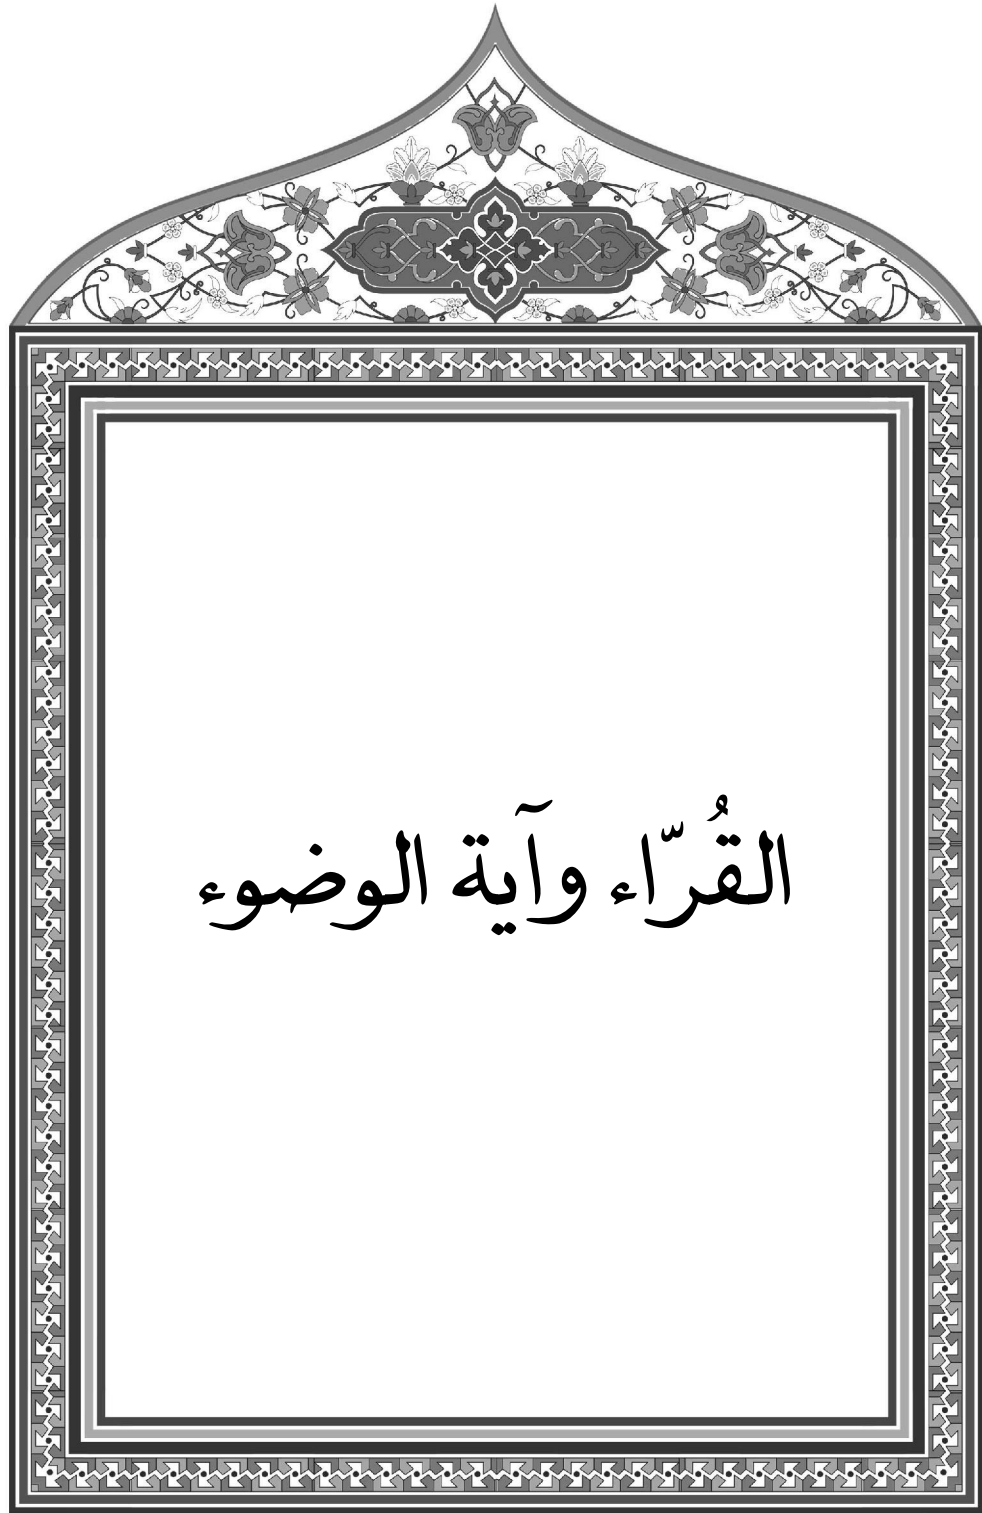 القُرّاء وآية الوضوء